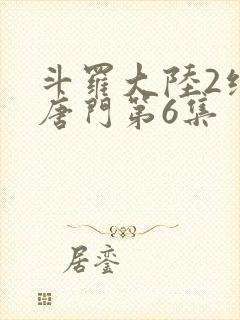 斗羅大陸2
唐門第6集
居鑾